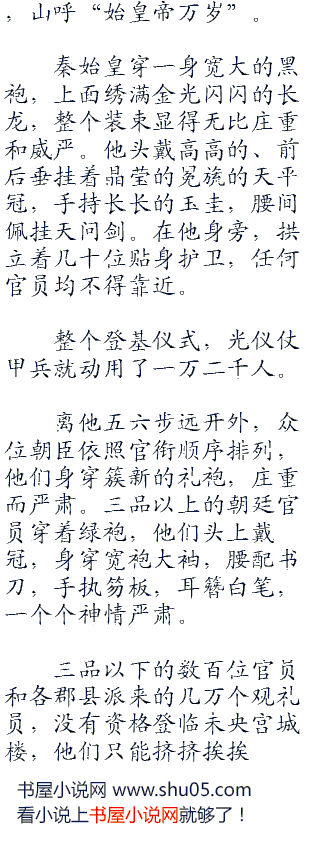 ，山呼“始皇帝万岁”。
秦始皇穿一身宽大的黑
袍，上面绣满金光闪闪的长
龙，整个装束显得无比庄重
和威严。他头戴高高的、前
后垂挂着晶莹的冕旒的天平
冠，手持长长的玉圭，腰间
佩挂天问剑。在他身旁，拱
立着几十位贴身护卫，任何
官员均不得靠近。
整个登基仪式，光仪仗
甲兵就动用了一万二千人。
离他五六步远开外，众
位朝臣依照官衔顺序排列，
他们身穿簇新的礼袍，庄重
而严肃。三品以上的朝廷官
员穿着绿袍，他们头上戴
冠，身穿宽袍大袖，腰配书
刀，手执笏板，耳簪白笔，
一个个神情严肃。
三品以下的数百位官员
和各郡县派来的几万个观礼
员，没有资格登临未央宫城
楼，他们只能挤挤挨挨
书屋小说网 www.shu05.com
看小说上书屋小说网就够了！